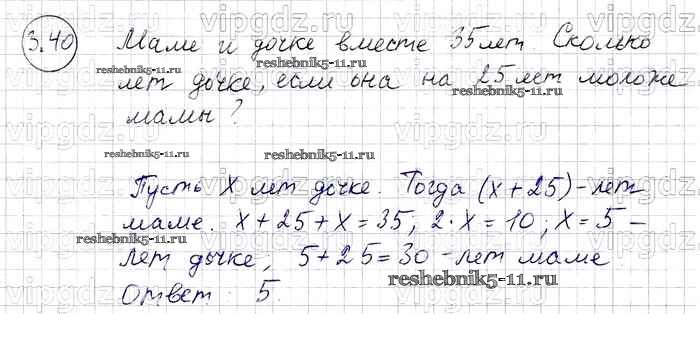 3.40 Маме и дочке вместе 35 лет. Сколько
лет дочке, если она на 25 лет моложе
мамы?
Пусть х лет дочке. Тогда (х + 25) - лет
маме. х + 25 + х = 35; 2·х = 10; х = 5 -
лет дочке; 5 + 25 = 30 - лет маме
Ответ: 5.
reshebnik5-11.ru
reshebnik5-11.ru
reshebnik5-11.ru
reshebnik5-11.ru
reshebnik5-11.ru
reshebnik5-11.ru
vipgdz.ru
vipgdz.ru
vipgdz.ru
vipgdz.ru